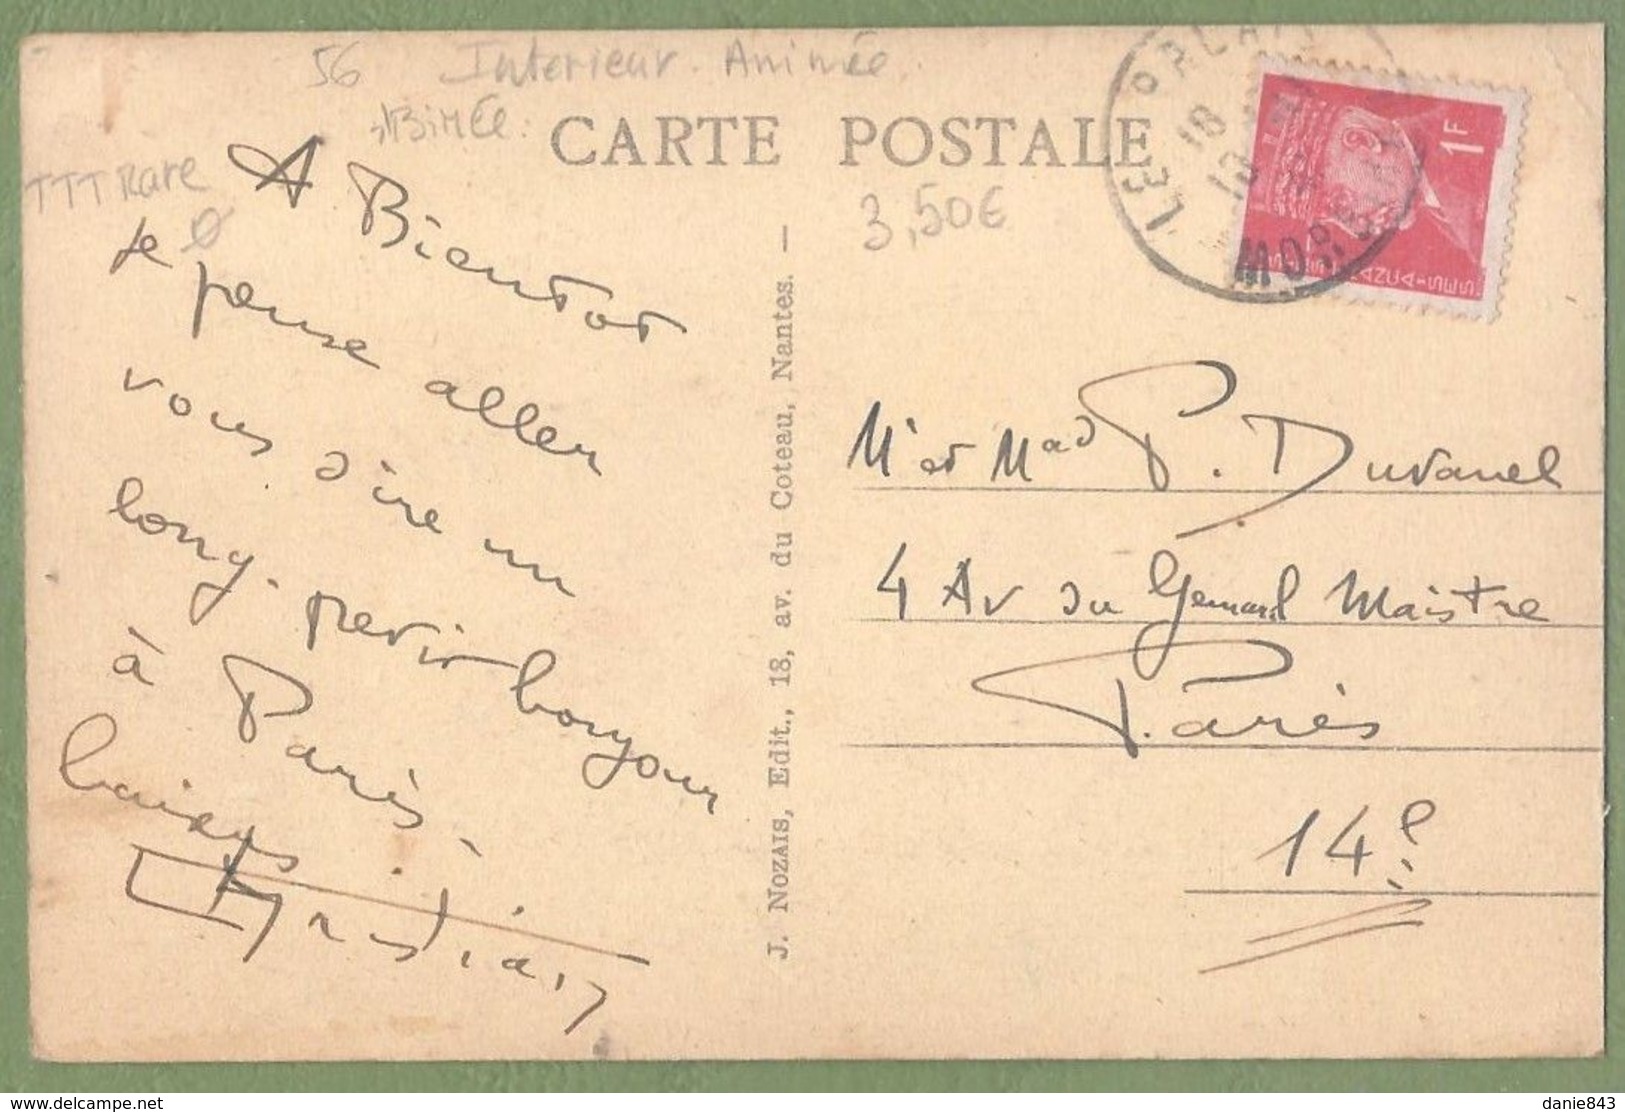 56 Interieur. Animée.
ABIMÉE.
TTT Rare
CARTE POSTALE
3,50€
LE PALAIS
18
MORBIHAN
1F
A Bientot
Je pense aller
vous dire un
long. petit bonjour
à Paris.
baisers
Christian
J. NOZAIS, Edit., 18, av. du Coteau, Nantes. —
Mr et Mad P. Duvanel
4 Av du General Maistre
Paris
14e
delcampe.net
danie843